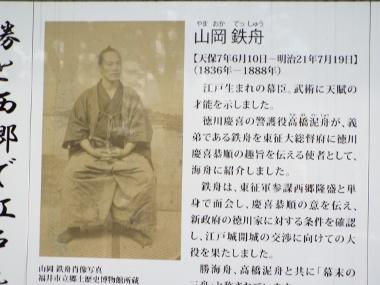 勝と西郷で江戸
やま おか てっ しゅう
山岡 鉄舟
【天保7年6月10日ー明治21年7月19日】
(1836年ー1888年)
江戸生まれの幕臣。武術に天賦の
才能を示しました。
徳川慶喜の警護役高橋泥舟が、義
弟である鉄舟を東征大総督府に徳川
慶喜恭順の趣旨を伝える使者として、
海舟に紹介しました。
鉄舟は、東征軍参謀西郷隆盛と単
身で面会し、慶喜恭順の意を伝え、
新政府の徳川家に対する条件を確認
し、江戸城開城の交渉に向けての大
役を果たしました。
勝海舟、高橋泥舟と共に「幕末の
山岡 鉄舟肖像写真
福井市立郷土歴史博物館所蔵